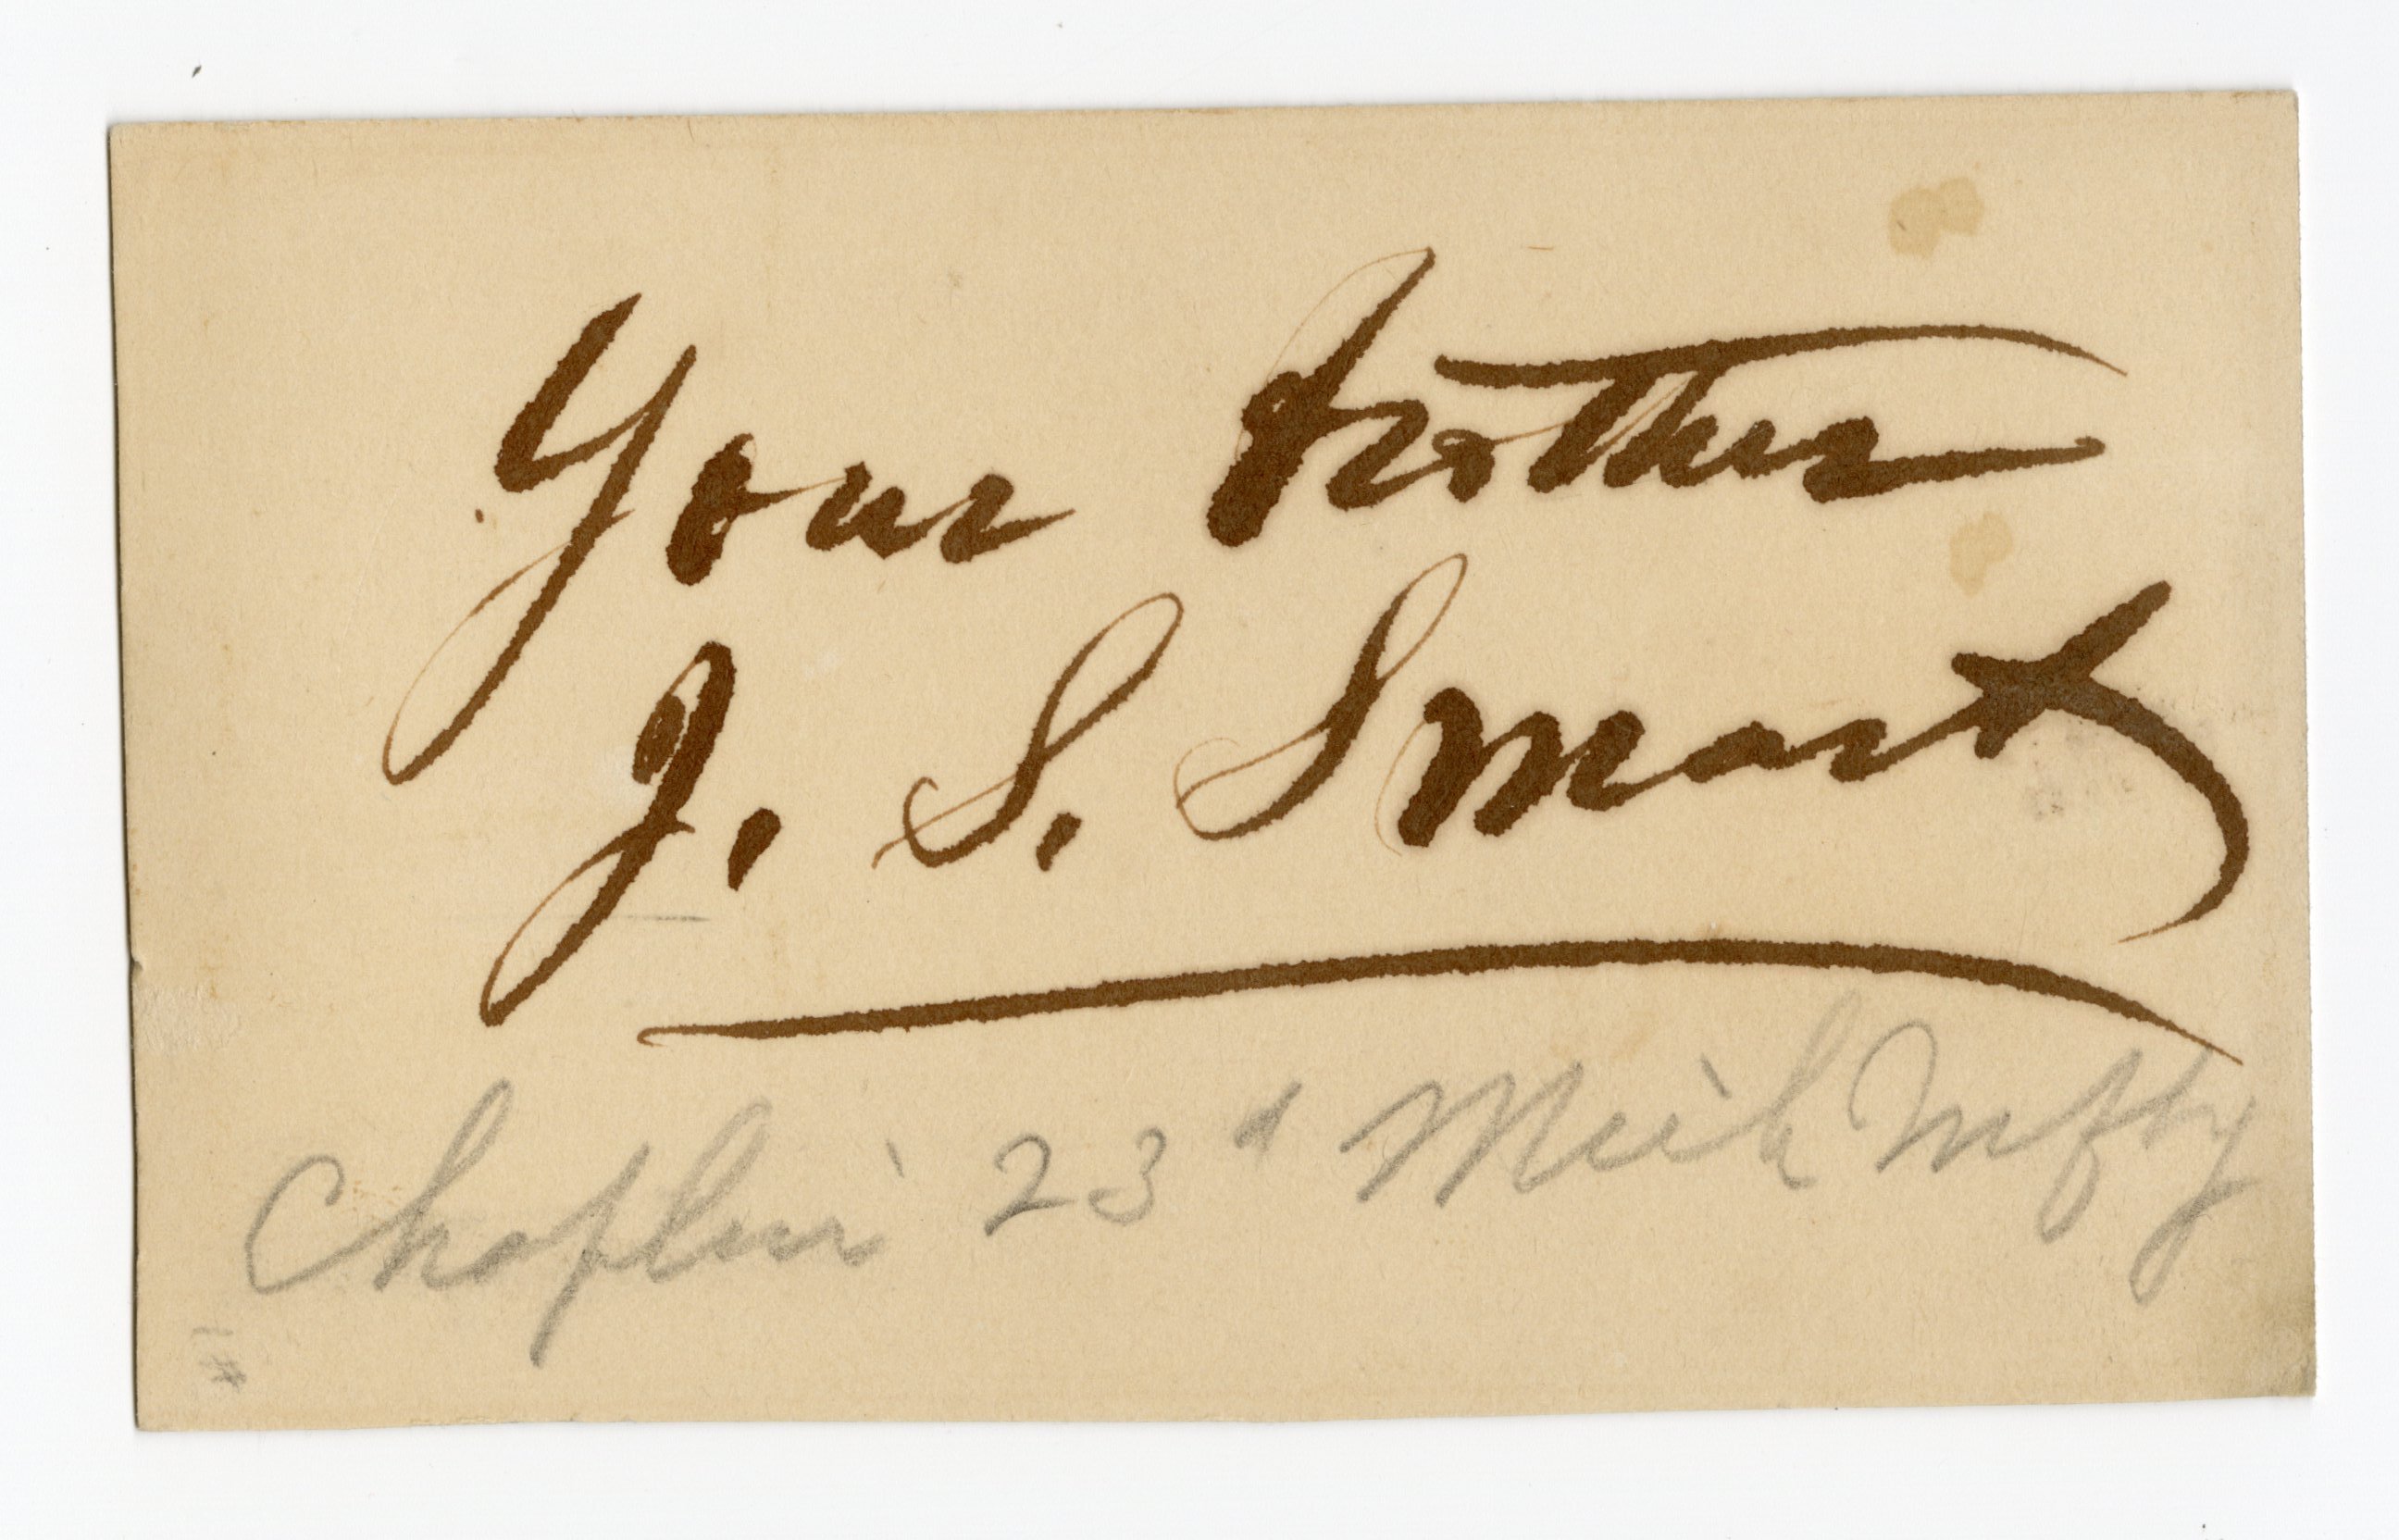 Your brother
J. S. Smart
Chaplin 23d Mich Infty